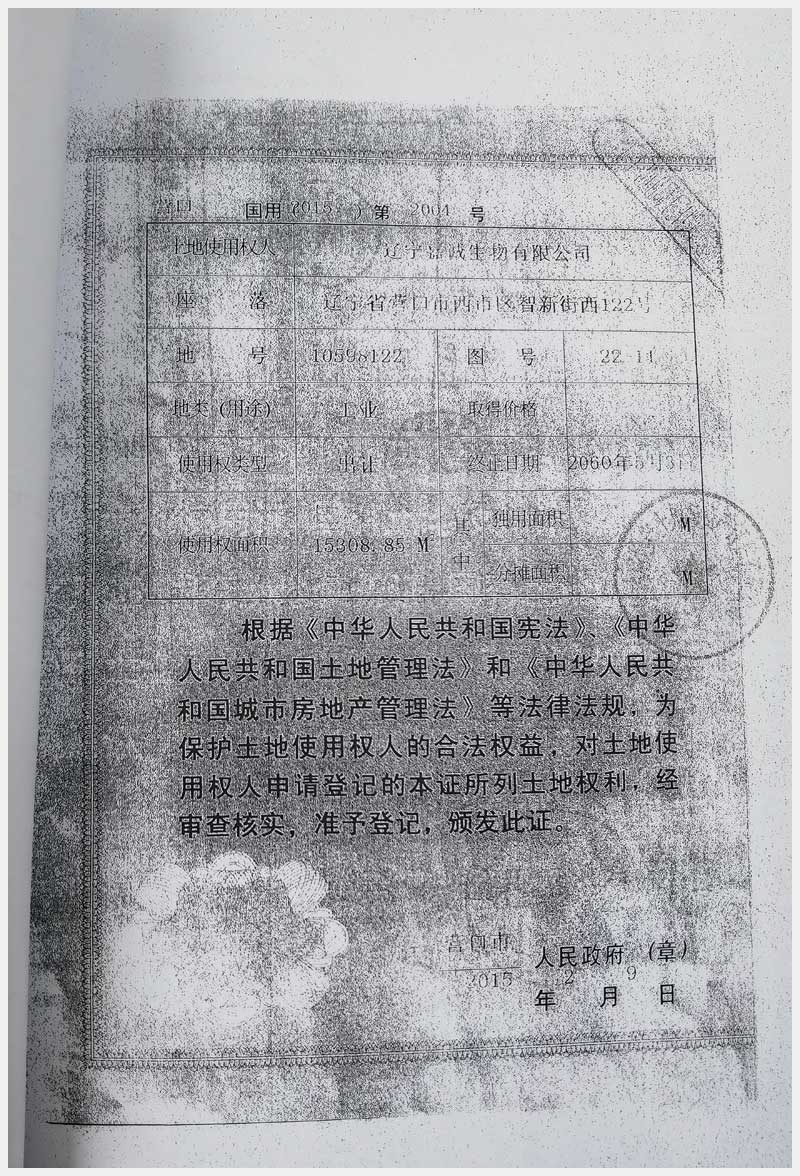 营口 国用(2015 )第 2004 号
土地使用权人 辽宁嘉诚生物有限公司
座 落 辽宁省营口市西市区智新街西122号
地 号 10598122 图 号 22-14
地类(用途) 工业 取得价格
使用权类型 出让 终止日期 2060年5月31
使用权面积 15308.85 M 其中 独用面积 M
分摊面积 M
根据《中华人民共和国宪法》、《中华
人民共和国土地管理法》和《中华人民共
和国城市房地产管理法》等法律法规,为
保护土地使用权人的合法权益,对土地使
用权人申请登记的本证所列土地权利,经
审查核实,准予登记,颁发此证。
营口市 人民政府(章)
2015 年 2 月 9 日